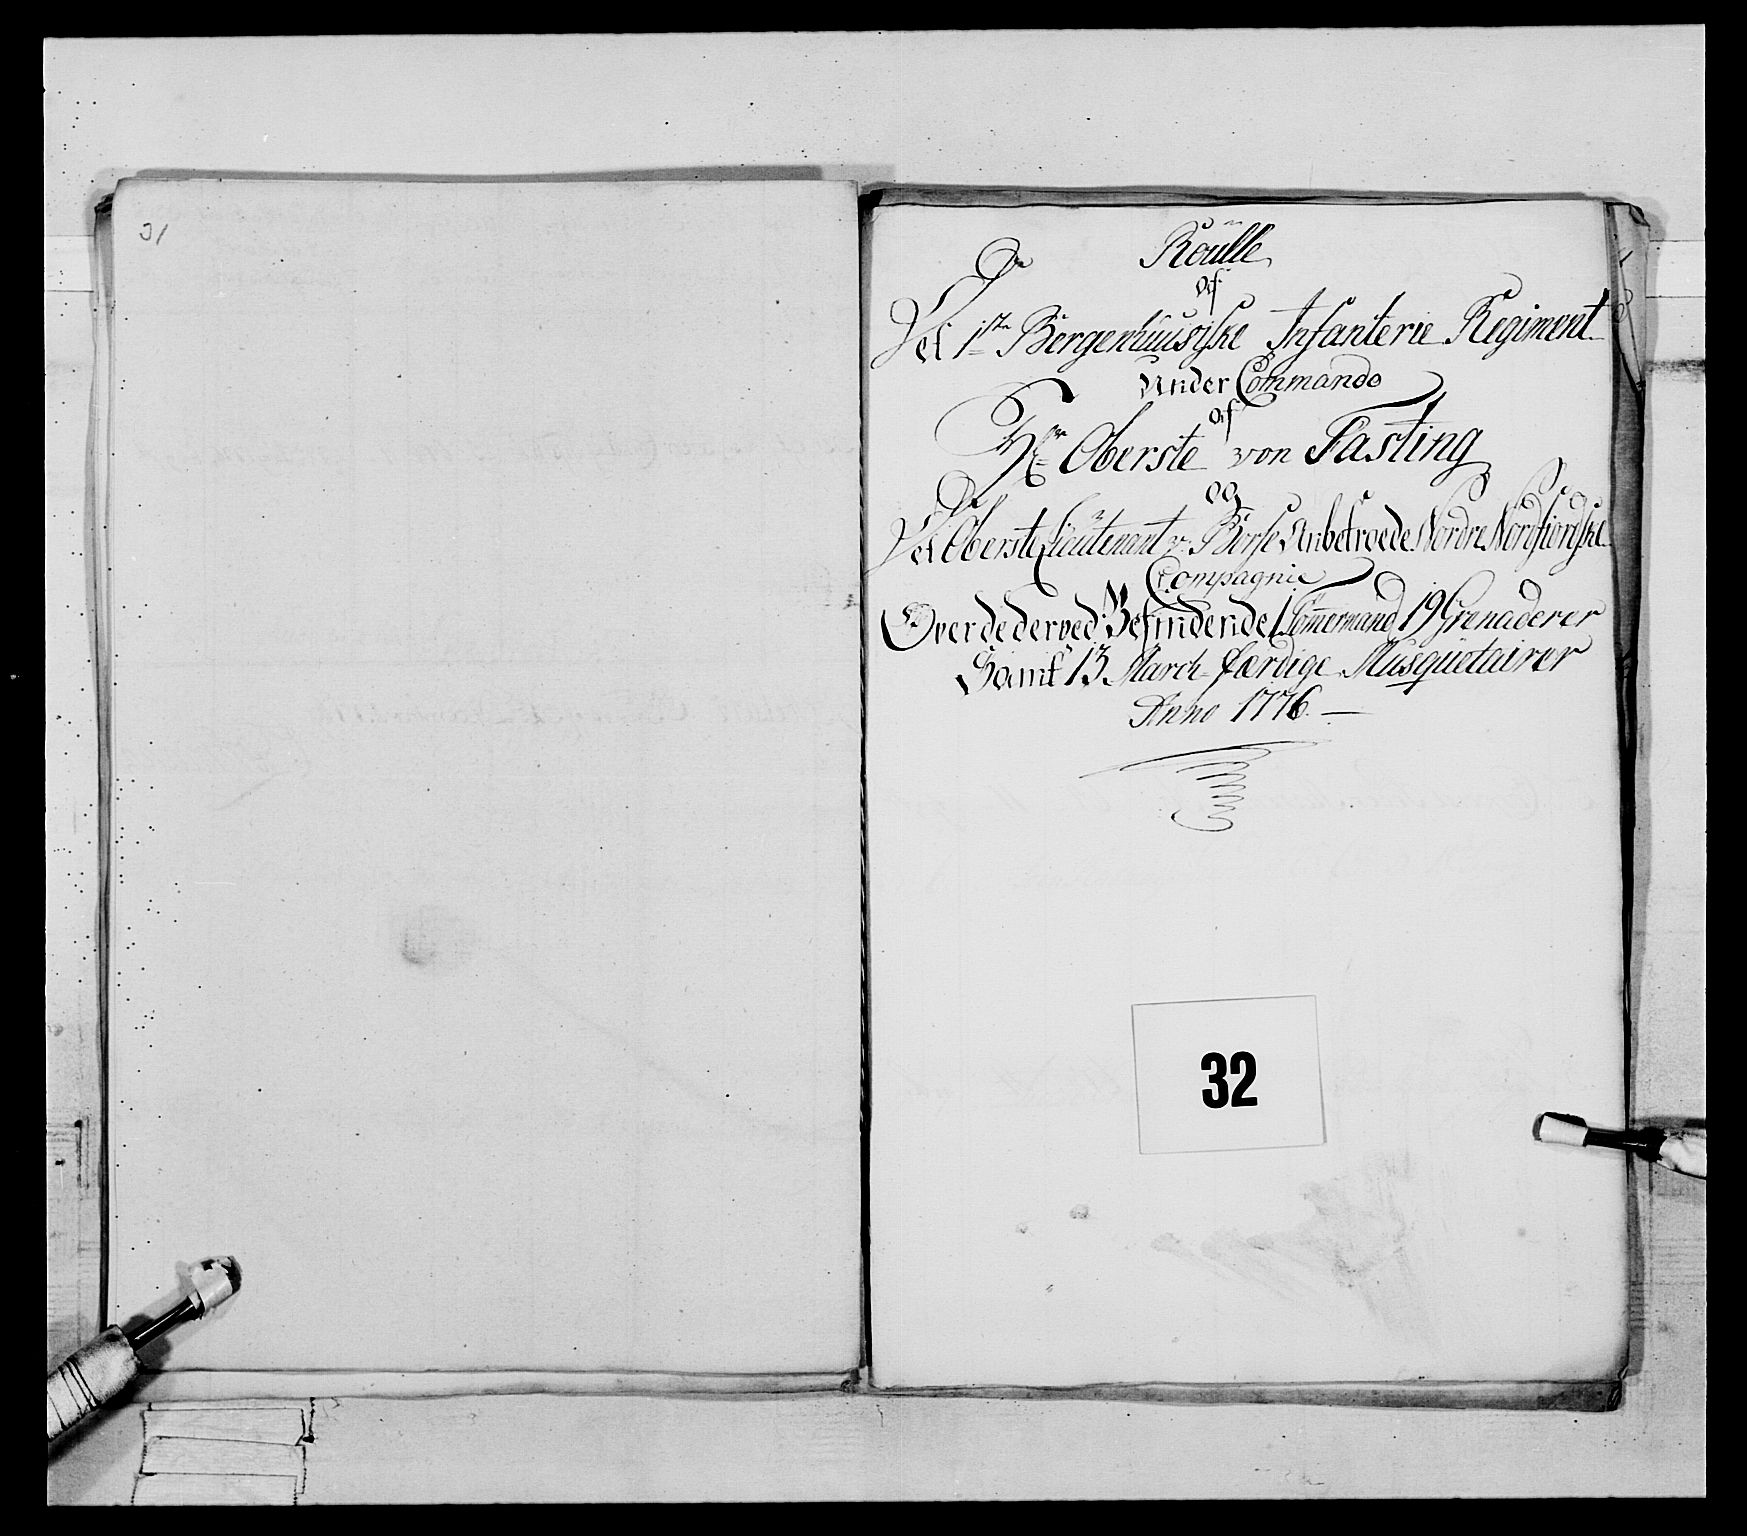 31
Roülle
af
Det 1ste Bergenhüusiske Infanterie Regiment
Under Commando
af
Hr Oberste von Fasting
og
Det Oberste Lieütenant v. Børse Anbetroede Nordre Nordfiordske
Compagnie
Over de derved Befindende 1 Tømermand 19 Grenaderer
Samt 13 March-færdige Musqüetairer
Anno 1776.
32